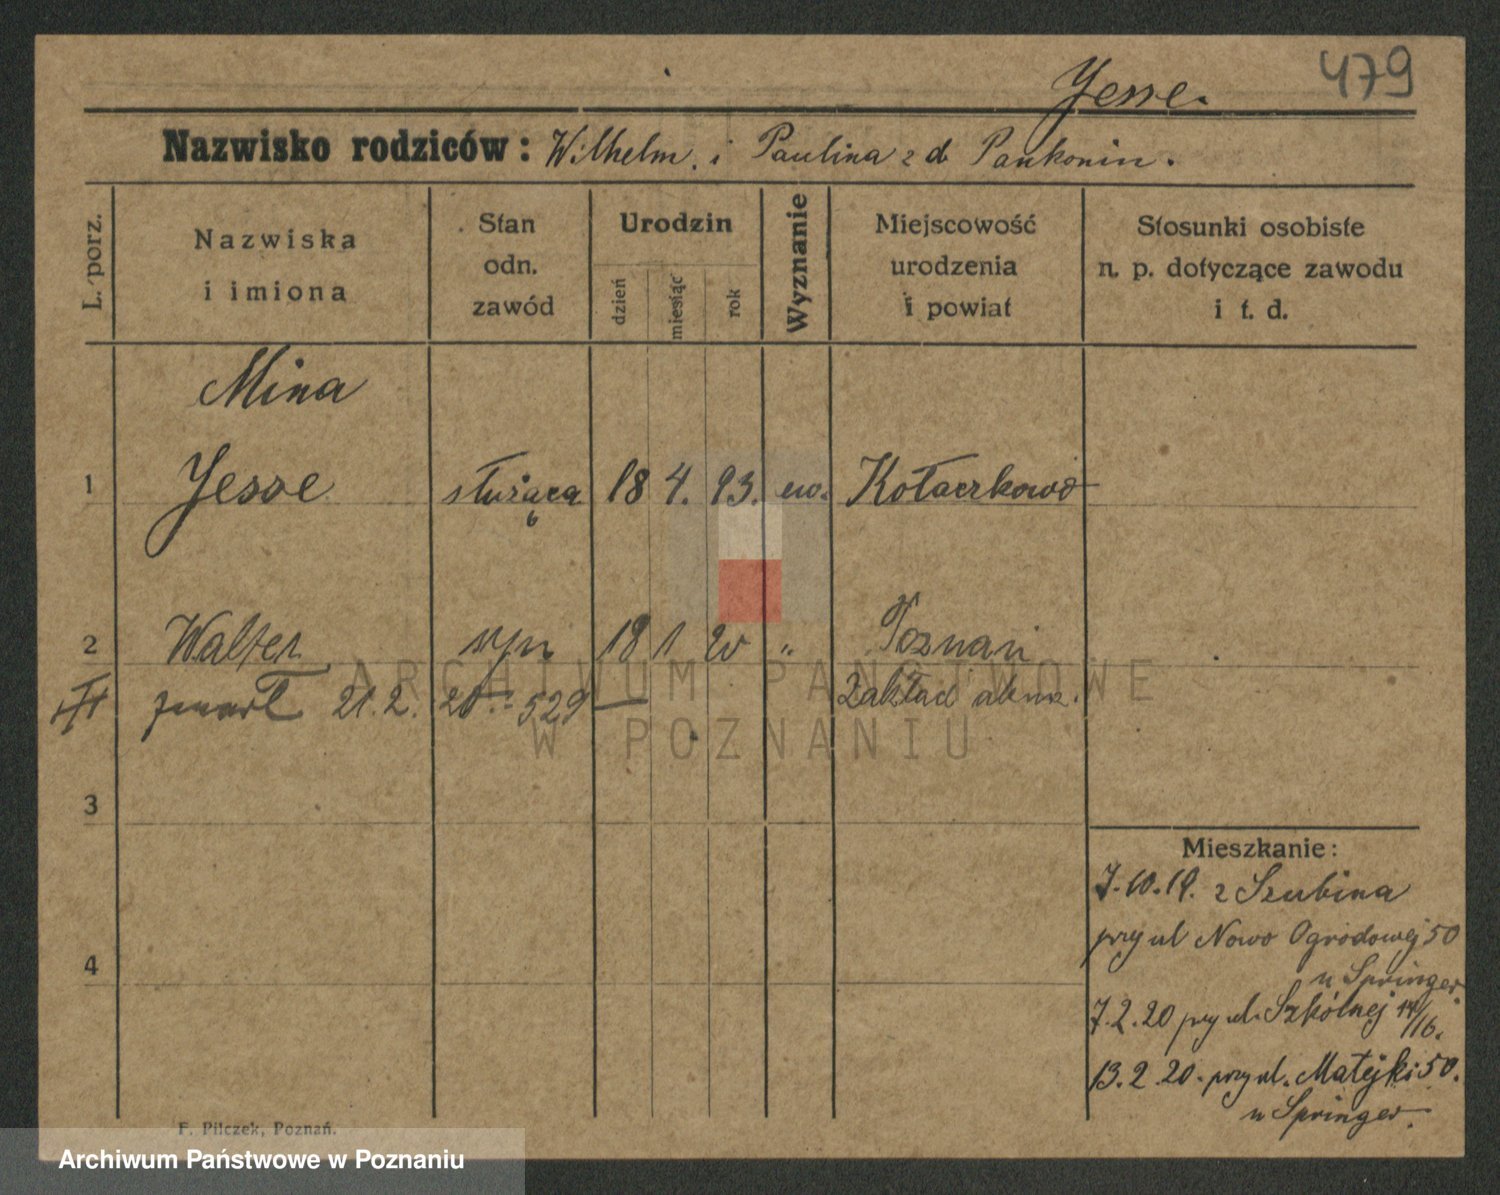 479
Jesse.
Nazwisko rodziców: Wilhelm. i Paulina z d Pankonin.
L. porz.
Nazwiska
i imiona
Stan
odn.
zawód
Urodzin
dzień
miesiąc
rok
Wyznanie
Miejscowość
urodzenia
i powiat
Stosunki osobiste
n. p. dotyczące zawodu
i t. d.
Mina
1 Jesse służąca 18 4. 93. ew. Kołaczkowo
2 Walter syn 18 1 20 " Poznań
zmarł 21. 2. 20 529 Zakład
3
4
Mieszkanie:
7.10.19. z Szubina
przy ul Nowo Ogrodowej 50
u Springer.
7.2.20 przy ul. Szkólnej 14/16.
13.2.20. przy ul. Matejki 50.
u Springer.
F. Pilczek, Poznań.
ARCHIWUM PAŃSTWOWE
W POZNANIU
Archiwum Państwowe w Poznaniu